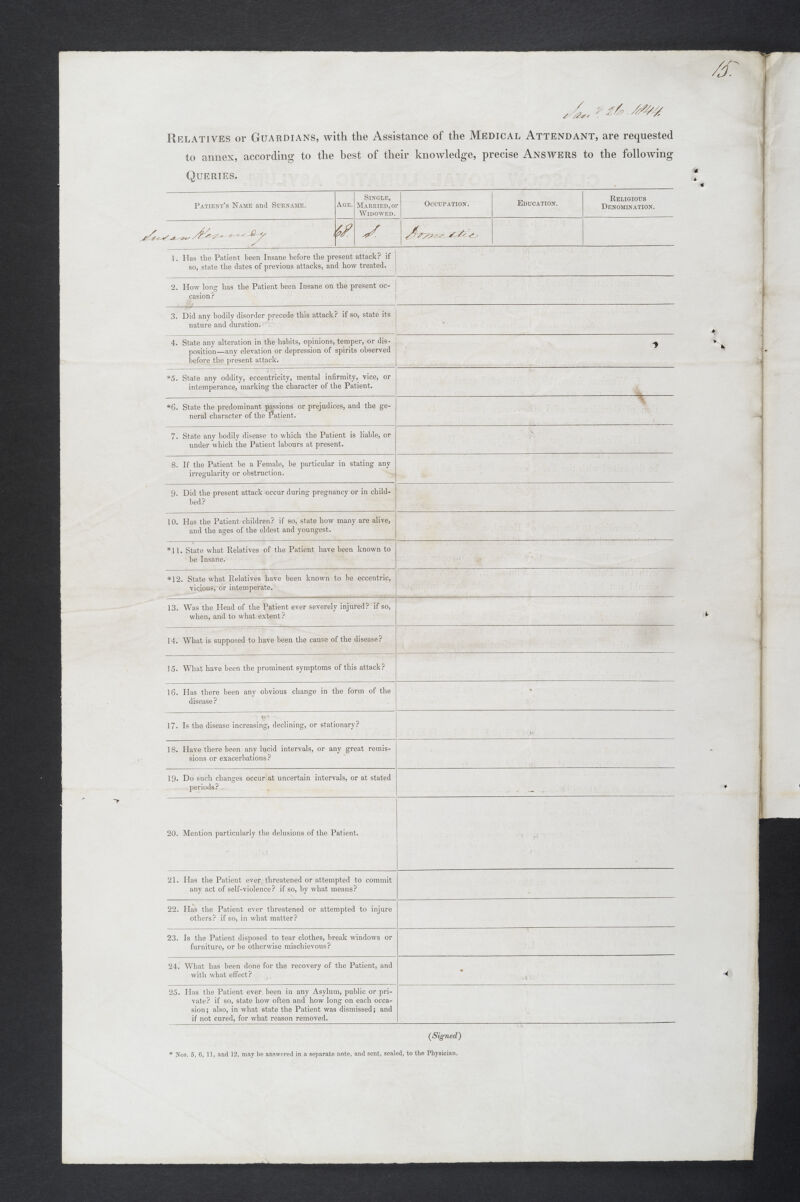 15.
Jany 26 1844.
RELATIVES or GUARDIANS, with the Assistance of the MEDICAL ATTENDANT, are requested
to annex, according to the best of their knowledge, precise ANSWERS to the following
QUERIES.
PATIENT'S NAME and SURNAME.
AGE.
SINGLE,
MARRIED, or
WIDOWED.
OCCUPATION.
EDUCATION.
RELIGIOUS
DENOMINATION.
Susan Kennedy
68.
S.
Domestic
1. Has the Patient been Insane before the present attack? if
so, state the dates of previous attacks, and how treated.
2. How long has the Patient been Insane on the present oc-
casion?
3. Did any bodily disorder precede this attack? if so, state its
nature and duration.
4. State any alteration in the habits, opinions, temper, or dis-
position—any elevation or depression of spirits observed
before the present attack.
*5. State any oddity, eccentricity, mental infirmity, vice, or
intemperance, marking the character of the Patient.
*6. State the predominant passions or prejudices, and the ge-
neral character of the Patient.
7. State any bodily disease to which the Patient is liable, or
under which the Patient labours at present.
8. If the Patient be a Female, be particular in stating any
irregularity or obstruction.
9. Did the present attack occur during pregnancy or in child-
bed?
10. Has the Patient children? if so, state how many are alive,
and the ages of the oldest and youngest.
*11. State what Relatives of the Patient have been known to
be Insane.
*12. State what Relatives have been known to be eccentric,
vicious, or intemperate.
13. Was the Head of the Patient ever severely injured? if so,
when, and to what extent?
14. What is supposed to have been the cause of the disease?
15. What have been the prominent symptoms of this attack?
16. Has there been any obvious change in the form of the
disease?
17. Is the disease increasing, declining, or stationary?
18. Have there been any lucid intervals, or any great remis-
sions or exacerbations?
19. Do such changes occur at uncertain intervals, or at stated
periods?
20. Mention particularly the delusions of the Patient.
21. Has the Patient ever threatened or attempted to commit
any act of self-violence? if so, by what means?
22. Has the Patient ever threatened or attempted to injure
others? if so, in what matter?
23. Is the Patient disposed to tear clothes, break windows or
furniture, or be otherwise mischievous?
24. What has been done for the recovery of the Patient, and
with what effect?
25. Has the Patient ever been in any Asylum, public or pri-
vate? if so, state how often and how long on each occa-
sion; also, in what state the Patient was dismissed; and
if not cured, for what reason removed.
(Signed)
* Nos. 5, 6, 11, and 12, may be answered in a separate note, and sent, sealed, to the Physician.